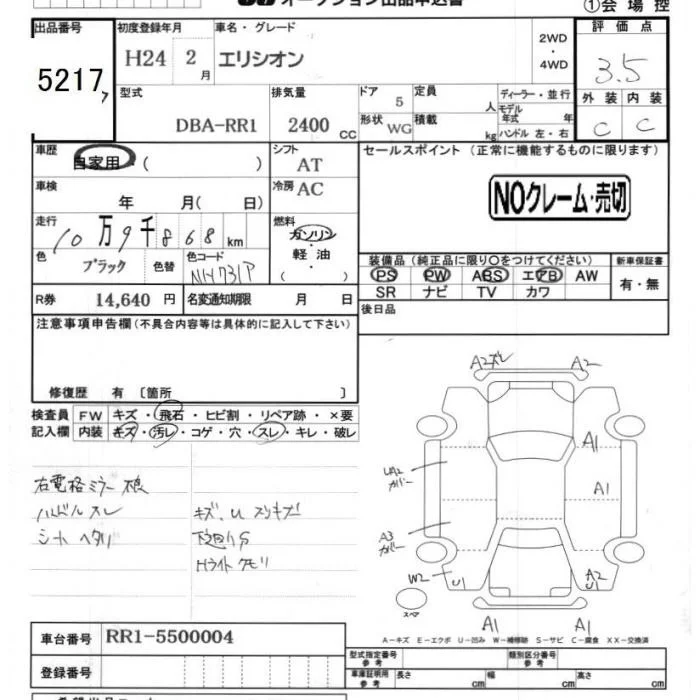 オークション出品申込書
①会場控
出品番号 初度登録年月 車名・グレード 評価点
5217 H24 2月 エリシオン 2WD・4WD 3.5
型式 排気量 ドア 5 定員 人 ディーラー・並行
モデル年式 年
外装 内装
DBA-RR1 2400cc 形状 WG 積載 kg ハンドル 左・右 C C
車歴 自家用 ( ) シフト AT セールスポイント (正常に機能するものに限ります)
車検 年 月( 日) 冷房 AC NOクレーム・売切
走行 10万9千868km 燃料 ガソリン・軽油・( )
色 ブラック 色替 色コード NH731P
装備品(純正品に限り○をつけてください) 新車保証書
PS PW ABS エアB AW 有・無
SR ナビ TV カワ
R券 14,640円 名変通知期限 月 日
後日品
注意事項申告欄(不具合内容等は具体的に記入して下さい)
修復歴 有 〔箇所 〕
検査員 FW キズ・飛石・ヒビ割・リペア跡・×要
記入欄 内装 キズ・汚レ・コゲ・穴・スレ・キレ・破レ
右電格ミラー不良
ハンドルスレ キズ、U スリキズ
シートヘタリ 下廻りS
Hライトクモリ
A2ズレ A2
A1
UA2カバー A1
A3カバー
W2 U1 A2 U1
スペア A1 A1
A-キズ E-エクボ U-凹み W-補修跡 S-サビ C-腐食 XX-交換済
車台番号 RR1-5500004
型式指定番号 参考 類別区分番号 参考
登録番号 車庫証明用 参考 長さ cm 幅 cm 高さ cm